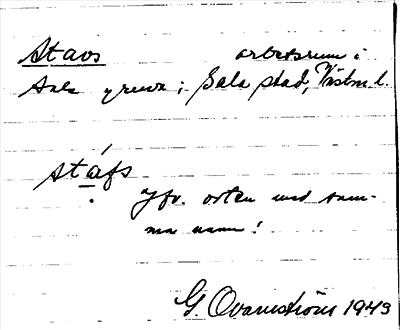 Stavs arbetsrum i
Sala gruva i Sala stad, Västm l.
stáfs
Jfr. orten med sam-
ma namn!
G. Qvarnström 1943